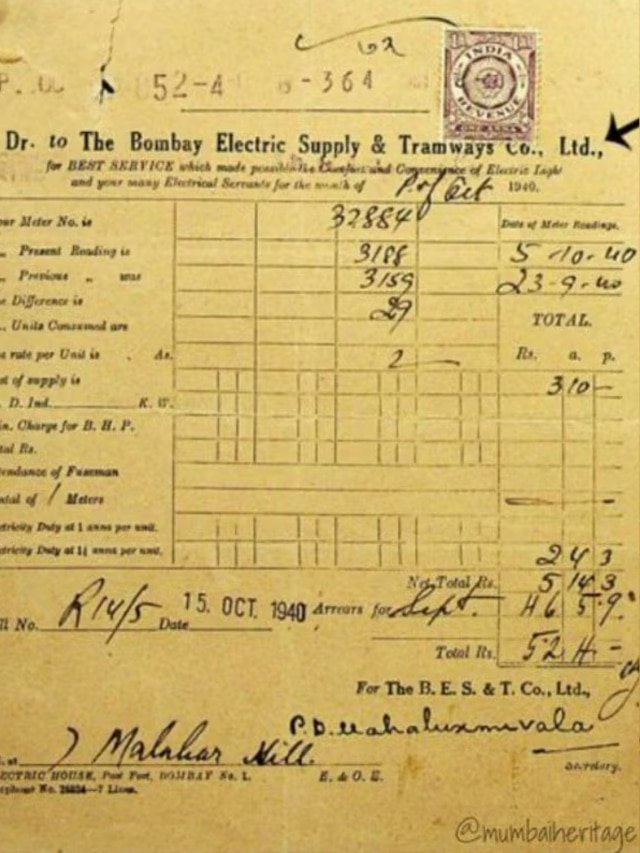 52-4 - 364
INDIA
REVENUE
ONE ANNA
Dr. to The Bombay Electric Supply & Tramways Co., Ltd.,
for BEST SERVICE which made possible the Comfort and Convenience of Electric Light
and your many Electrical Servants for the month of P. of Oct 1940.
our Meter No. is 32884 Date of Meter Readings.
„ Present Reading is 3188 5-10-40
„ Previous „ was 3159 23-9-40
e Difference is 29
„ Units Consumed are TOTAL.
e rate per Unit is . As. 2 — Rs. a. p.
st of supply is 3 10 —
. D. Ind. K. W.
in. Charge for B. H. P.
tal Rs.
tendance of Fuseman
ntal of 1 Meters —
ctricity Duty at 1 anna per unit.
ctricity Duty at 1¼ annas per unit. 2 4 3
Net Total Rs. 5 14 3
ll No. R14/5 Date 15. OCT. 1940 Arrears for Sept. 46 5 9
Total Rs. 52 4 -
For The B. E. S. & T. Co., Ltd.,
P. D. Mahaluxmivala
Malabar Hill. Secretary.
ECTRIC HOUSE, Post Fort, BOMBAY No. 1. E. & O. E.
ephone No. —7 Lines.
@mumbaiheritage